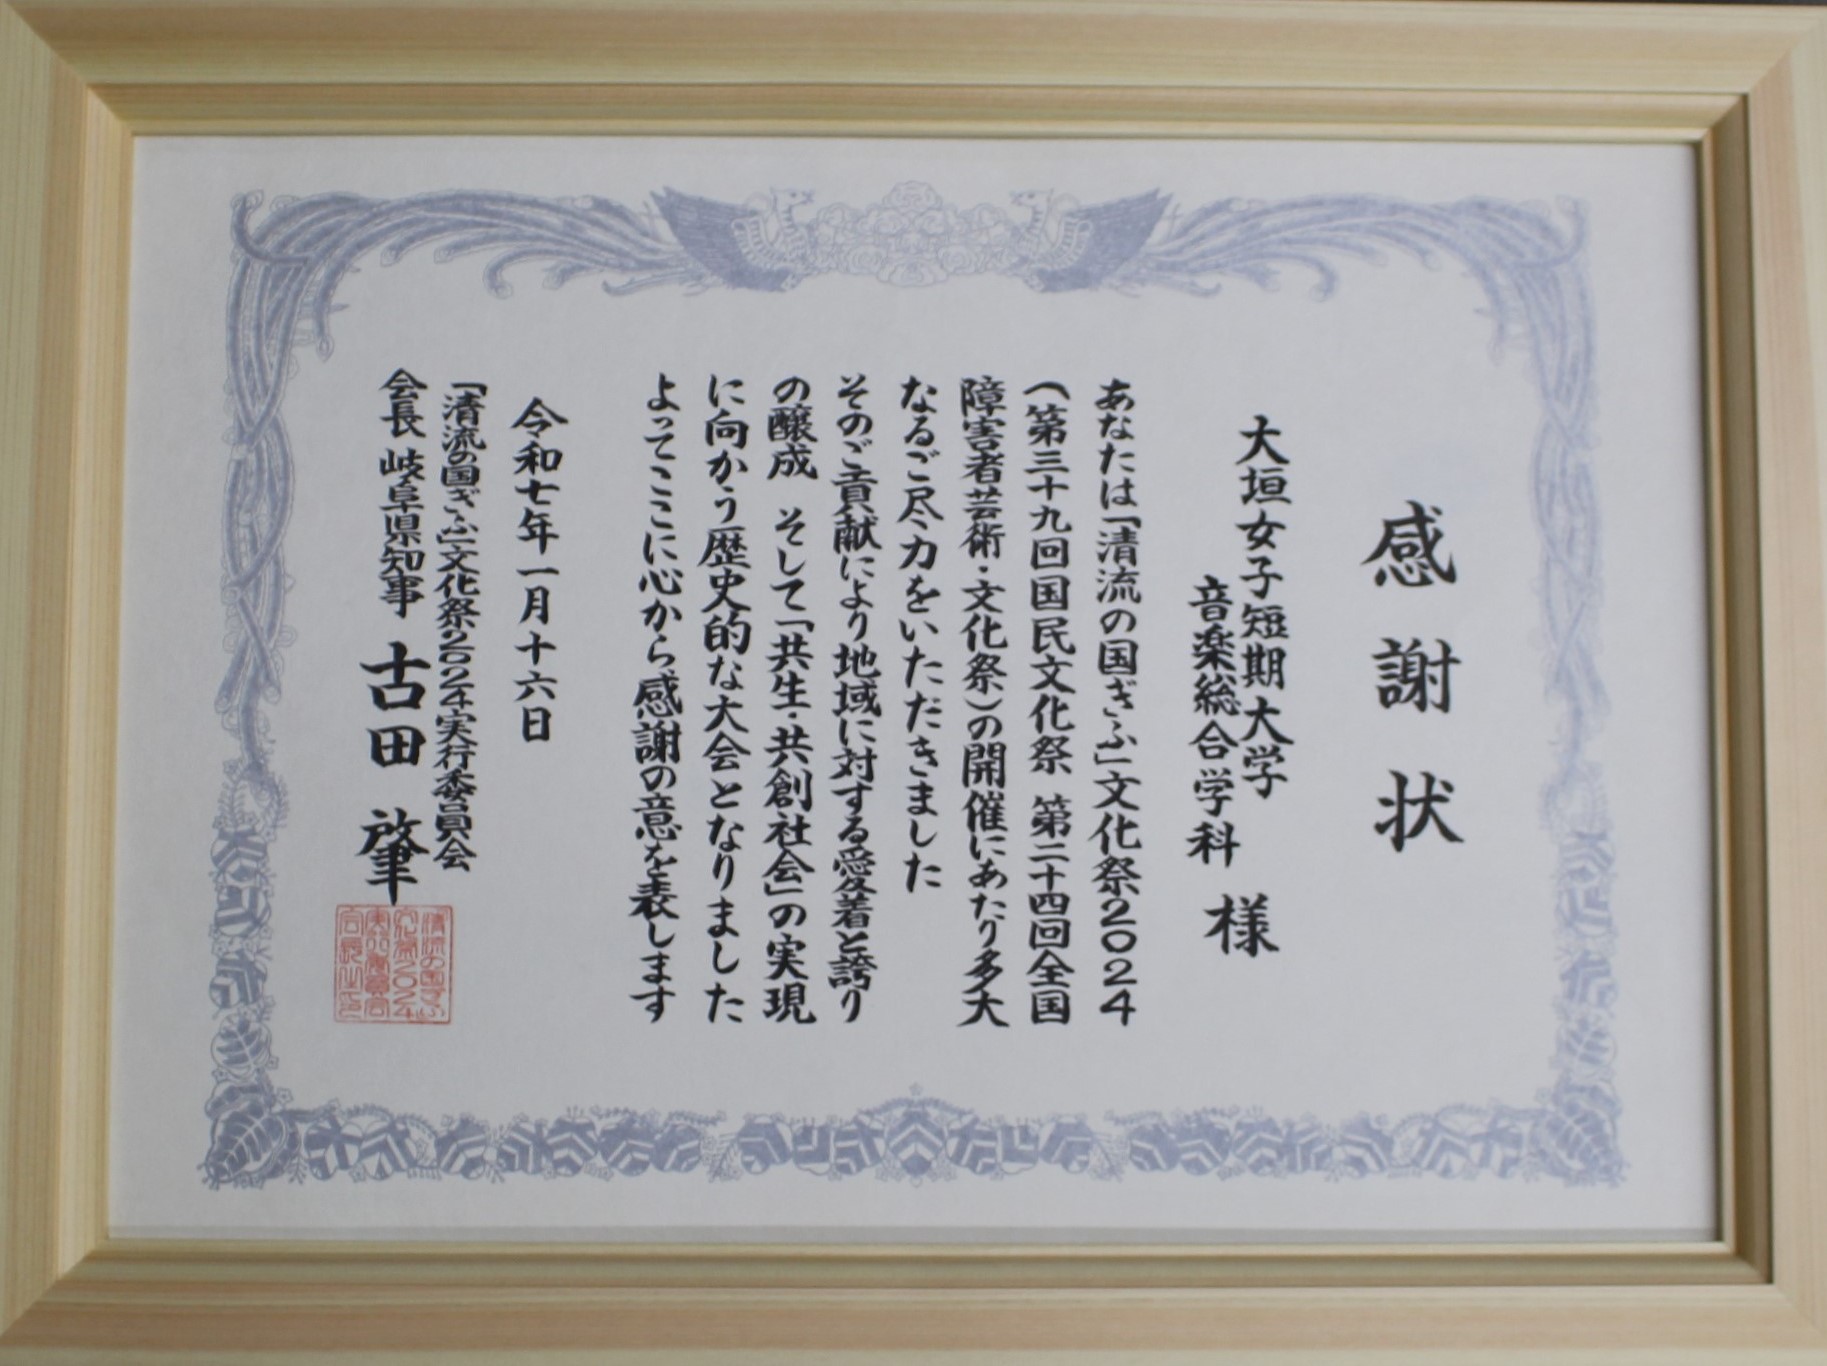 感謝状
大垣女子短期大学
音楽総合学科 様
あなたは「清流の国ぎふ」文化祭2024
(第三十九回国民文化祭 第二十四回全国
障害者芸術・文化祭)の開催にあたり多大
なるご尽力をいただきました
そのご貢献により地域に対する愛着と誇り
の醸成 そして「共生・共創社会」の実現
に向かう歴史的な大会となりました
よってここに心から感謝の意を表します
令和七年一月十六日
「清流の国ぎふ」文化祭2024実行委員会
会長 岐阜県知事 古田 肇
清流の国ぎふ
文化祭2024
実行委員会
会長之印